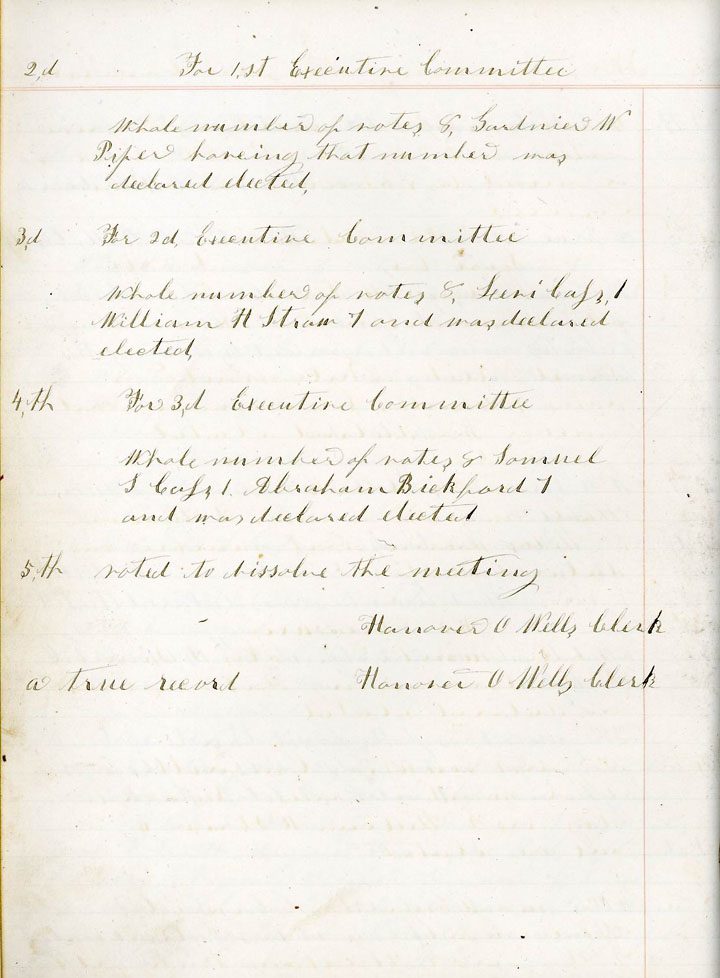 2,d For 1,st Executive Committee
Whole number of votes 8, Gardnier W
Piper haveing that number was
declared elected,
3,d For 2d, Executive Committee
Whole number of votes 8, Levi Cass, 1
William H Straw 7 and was declared
elected,
4,th For 3,d Executive Committee
Whole number of votes 8 Samuel
S Cass, 1. Abraham Bickford 7
and was declared elected
5,th voted to dissolve the meeting
Hanover O Wells Clerk
a true record Hanover O Wells Clerk